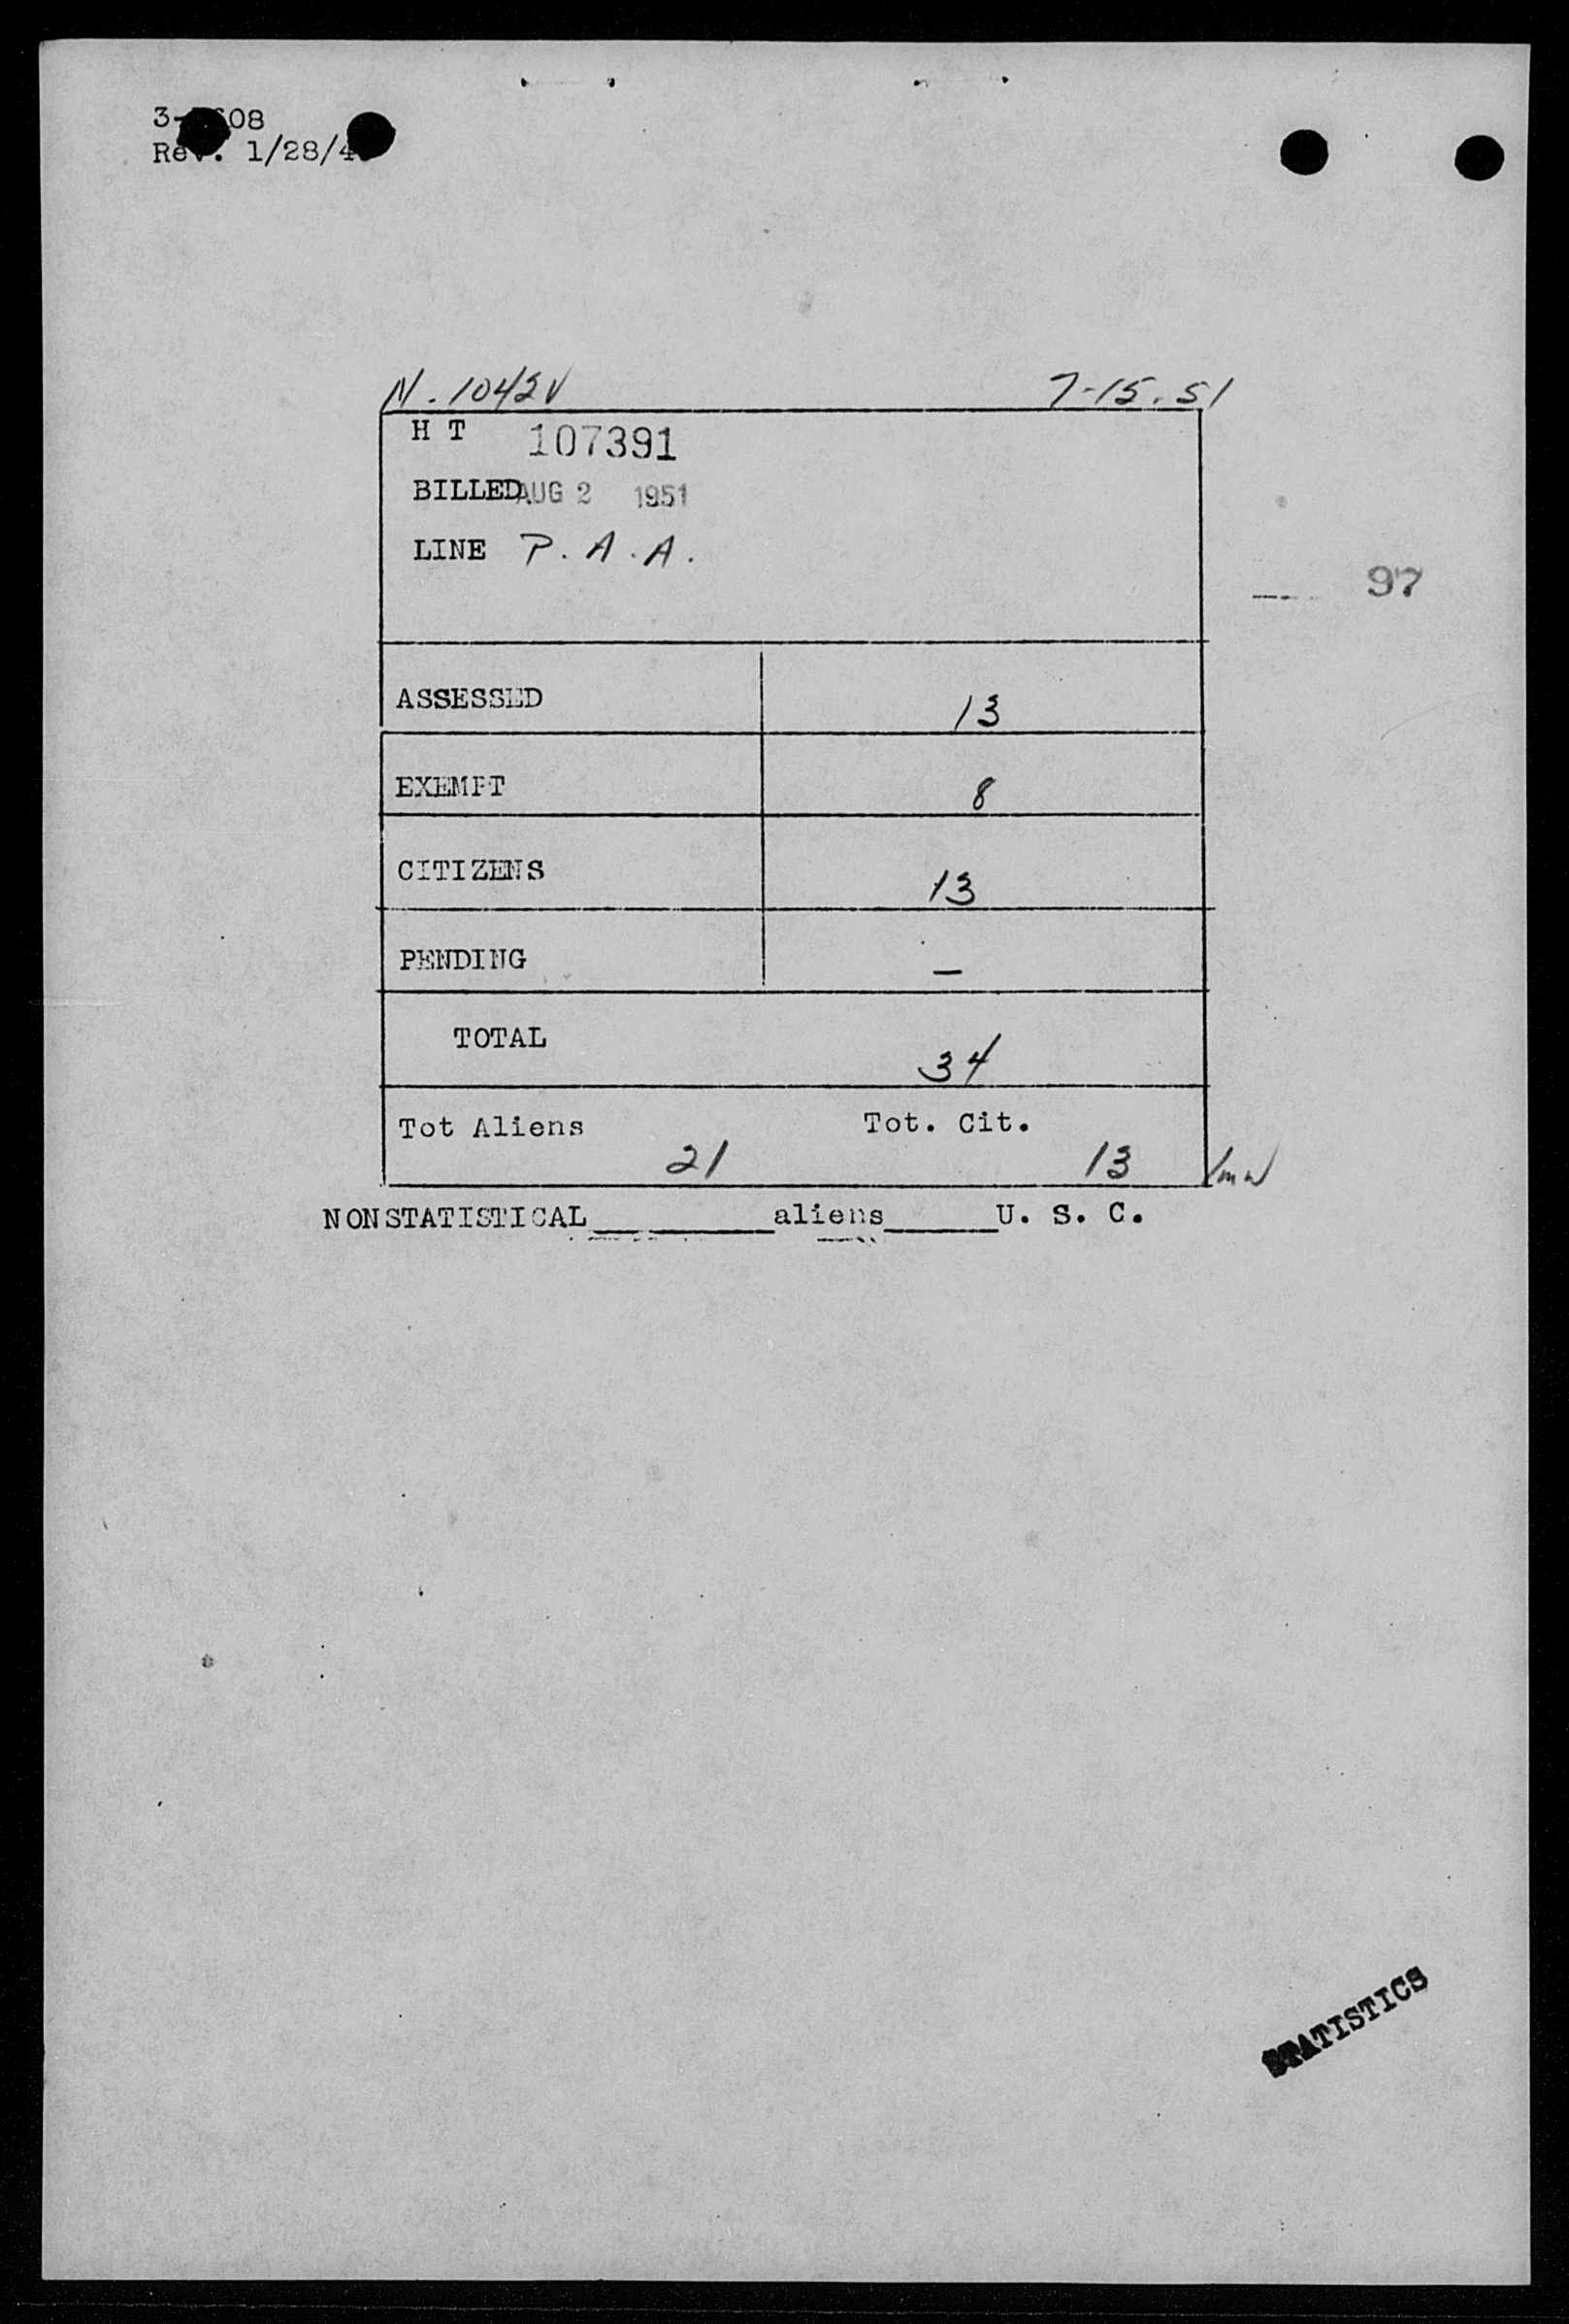 N. 1042V 7-15.51
H T 107391
BILLED AUG 2 1951
LINE P. A. A.
97
ASSESSED 13
EXEMPT 8
CITIZENS 13
PENDING —
TOTAL 34
Tot Aliens 21 Tot. Cit. 13
NONSTATISTICAL ______ aliens ______ U. S. C.
STATISTICS